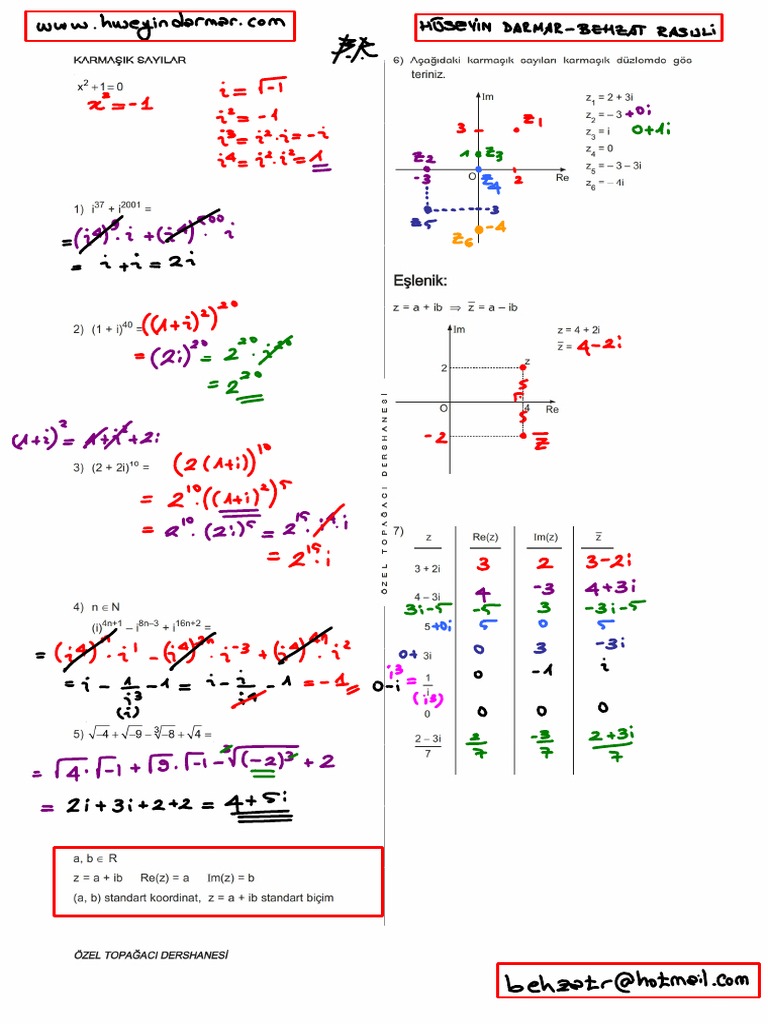 www.huseyindarmar.com
HÜSEYİN DARMAR-BEHZAT RASULİ
B.R
KARMAŞIK SAYILAR
x² + 1 = 0
x² = -1
i = √-1
i² = -1
i³ = i²·i = -i
i⁴ = i²·i² = 1
1) i³⁷ + i²⁰⁰¹ =
= (i⁴)⁹·i + (i⁴)⁵⁰⁰·i
= i + i = 2i
2) (1 + i)⁴⁰ = ((1+i)²)²⁰
= (2i)²⁰ = 2²⁰·i²⁰
= 2²⁰
(1+i)² = 1+i²+2i
3) (2 + 2i)¹⁰ = (2(1+i))¹⁰
= 2¹⁰·((1+i)²)⁵
= 2¹⁰·(2i)⁵ = 2¹⁵·i⁴·i
= 2¹⁵·i
4) n ∈ N
(i)⁴ⁿ⁺¹ – i⁸ⁿ⁻³ + i¹⁶ⁿ⁺² =
= (i⁴)ⁿ·i¹ - (i⁴)²ⁿ·i⁻³ + (i⁴)⁴ⁿ·i²
= i - 1/i³ - 1 = i - i/i⁴ - 1 = -1
(i)
5) √–4 + √–9 – ³√–8 + √4 =
= √4·√-1 + √9·√-1 - ³√(-2)³ + 2
= 2i + 3i + 2 + 2 = 4 + 5i
a, b ∈ R
z = a + ib Re(z) = a Im(z) = b
(a, b) standart koordinat, z = a + ib standart biçim
ÖZEL TOPAĞACI DERSHANESİ
ÖZEL TOPAĞACI DERSHANESİ
6) Aşağıdaki karmaşık sayıları karmaşık düzlemde gös
teriniz.
Im
z₁ = 2 + 3i
z₂ = – 3 +0i
z₃ = i 0+1i
z₄ = 0
z₅ = – 3 – 3i
z₆ = – 4i
3 z₁
z₂ 1 z₃
-3 O z₄ 2 Re
z₅ 3
z₆ -4
Eşlenik:
z = a + ib ⇒ z̅ = a – ib
Im
z = 4 + 2i
z̅ = 4-2i
2 z
O 4 Re
-2 z̅
7) z Re(z) Im(z) z̅
3 + 2i 3 2 3-2i
4 – 3i 4 -3 4+3i
3i-5 -5 3 -3i-5
5 +0i 5 0 5
0+ 3i 0 3 -3i
0-i i³ 1/i (i³) 0 -1 i
0 0 0 0
2 – 3i/7 2/7 -3/7 2+3i/7
behzatr@hotmail.com